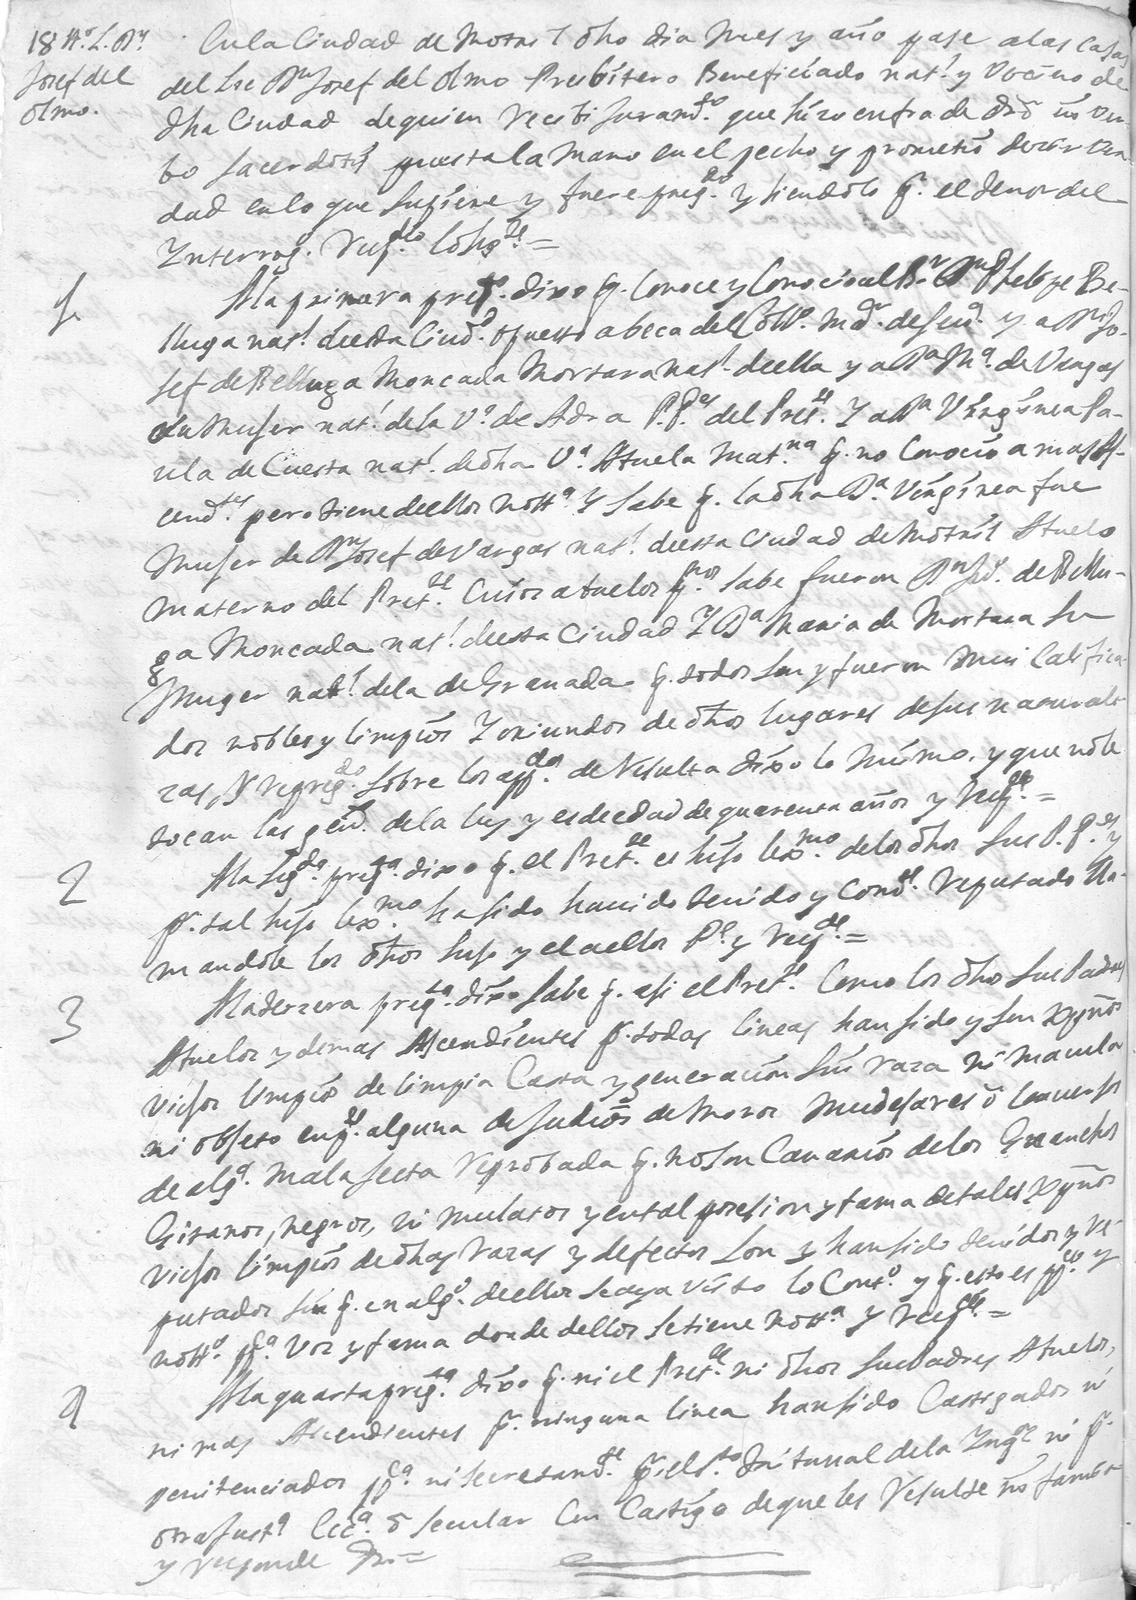 18 tt.º L. Dn.
Josef del
Olmo.
En la Ciudad de Motril dho dia mes y año pase a las casas
del Lic. Dn Josef del Olmo Presbitero Beneficiado nat.l y Vecino de
dha Ciudad de quien recebi Juram.to que hizo en fra de dro in Ver-
bo sacerdotis puesta la mano en el pecho y prometio decir ver-
dad en lo que supiere y fuere preg.do y siendolo p.r el tenor del
Interrog. Resp.dio lo sig.te =
1 A la primera preg.ta dixo q. conoce y conocio al Br. Dn Phelipe Be-
lluga nat.l de esta Ciud. opuesto a beca del Coll.º M.or de su 
 y a Dn Jo-
sef de Belluga Moncada Mortara nat.l de ella y a Da M.a de Vargas
su Muser nat.l de la V.a de Adra P.P.es del Pret.te Y a Da Virginea Pa-
ula de Cuesta nat.l de dha V.a Abuela Mat.na q. no conocio a mas As-
cend.tes pero tiene de ellos nott.a Y sabe q. la dha Da. Virginea fue
Muser de Dn Josef de Vargas nat.l de esta Ciudad de Motril Abuelo
materno del Pret.te Cuios abuelos p.nos sabe fueron Dn 
 de Bellu-
ga Moncada nat.l de esta Ciudad Y Da Maria de Mortara su
Muger nat.l de la de Granada q. todos son y fueron mui Califica-
dos nobles y limpios Y oriundos de dhos lugares de sus naturale-
zas, Y repreg.do sobre los app.dos de Resulta dixo lo mismo, y que no le
tocan las gen.s de la ley y es de edad de quarenta años y resp.de =
2 A la seg.da preg.ta dixo q. el Pret.te es hijo lex.mo de los dhos sus P.P.es y
p.r tal hijo lex.mo ha sido havido tenido y com.te reputado lla-
mandole los dhos hijo y el a ellos P.s y resp.de =
3 A la terzera preg.ta dixo sabe q. asi el Pret.te Como los dhos sus Padres
Abuelos y demas Ascendientes p.r todas lineas han sido y son xpnos
viejos limpios de limpia Casta y generacion sin raza ni macula
ni obseto en p.te alguna de Judios de Moros Mudesares ò Conversos
de alg.a mala secta reprobada q. no son Canarios de los Guanches
Gitanos, negros, ni mulatos y en tal posesion y fama de tales xpnos
viejos limpios de dhas razas y defectos son y han sido tenidos y re-
putados sin q. en alg.o de ellos se aya visto lo Cont.o y q. esto es pp.co y
nott.o pp.a voz y fama donde de ellos se tiene nott.a y resp.de =
4 A la quarta preg.ta dixo q. ni el Pret.te ni dhos sus Padres Abuelos,
ni mas Ascendientes p.r ninguna linea han sido Castigados ni
penitenciados pp.ca ni secretam.te p.r el s.to Tribunal de la Inq.on ni p.r
otra just.a Ecc.a o secular Con Castigo de que les Resulte infamia
y responde =